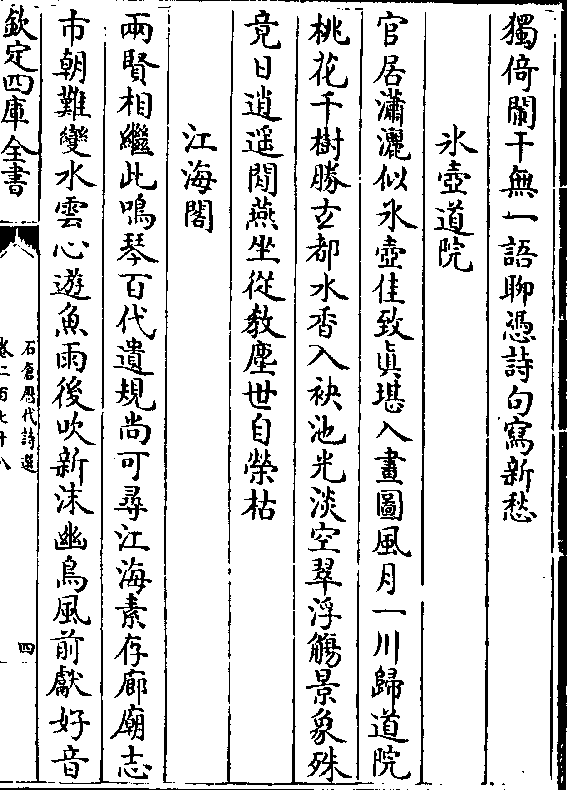 獨倚闌干無一語聊憑詩句寫新愁
氷壺道院
官居瀟灑似氷壺佳致真堪入畫圖風月一川歸道院
桃花千樹勝玄都水香入袂池光淡空翠浮觴景象殊
竟日逍遥閒燕坐從教塵世自榮枯
江海閣
兩賢相繼此鳴琴百代遺規尚可尋江海素存廊廟志
市朝難變水雲心遊魚雨後吹新沫幽鳥風前獻好音
欽定四庫全書
石倉歷代詩選
卷二百七十八
四